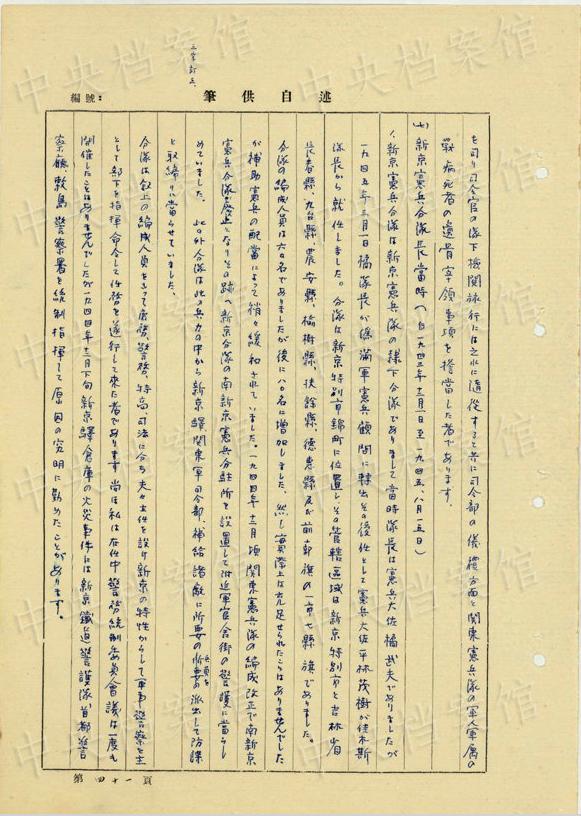 述自供筆
編號:
を司り司令官の隊下機関旅行には之れに隨従すると共に司令部の儀禮方面と関東憲兵隊の軍人軍属の
戰病死者の遺骨宰領事項を擔当した者であります。
(七)新京憲兵分隊長当時(自一九四三.三月一日至一九四五.八月一五日)
1、新京憲兵分隊は新京憲兵隊の隷下分隊でありまして当時隊長は憲兵大佐橘武夫でありましたが
一九四五年三月一日橘隊長が偽滿軍憲兵顧問に轉出その後任として憲兵大佐平林茂樹が佳木斯
隊長から就任しました。分隊は新京特別市錦町に位置し、その管轄區域は新京特別市と吉林省
長春縣、九台縣、農安縣、楡樹縣、扶餘縣、德惠縣及前郭旗の一市七縣旗でありました。
分隊の編成人員は六〇名でありましたが後に八〇名に増加しました、然し實際上は充足せられたことはありませんでした
が補助憲兵の配當によって稍々緩和されていました。一九四四年十二月頃関東憲兵隊の編成改正で南新京
憲兵分隊が廢止となりその跡へ新京分隊の南新京憲兵分駐所を設置して附近軍官舎街の警護に当らし
めていました。此の外分隊は此の兵力の中から新京驛、関東軍司令部、補給諸廠に所要の兵員を派出して防諜
と取締りに當らせていました、
分隊は叙上の編成人員をもって庶務、警務、特高、司法に分ち夫々主任を設け新京の特性からして軍事警察を主
として部下を指揮命令して任務を遂行して來た者であります 尚ほ私は在任中警務統制委員會議は一度も
開催したことはありませんでしたが一九四四年十二月下旬新京驛倉庫の火災事件には新京鐵道警護隊、首都警
察廳、敷島警察署を統制指揮して原因の究明に勤めたことがあります。
第四十一頁
中央档案馆
中央档案馆
中央档案馆
中央档案馆